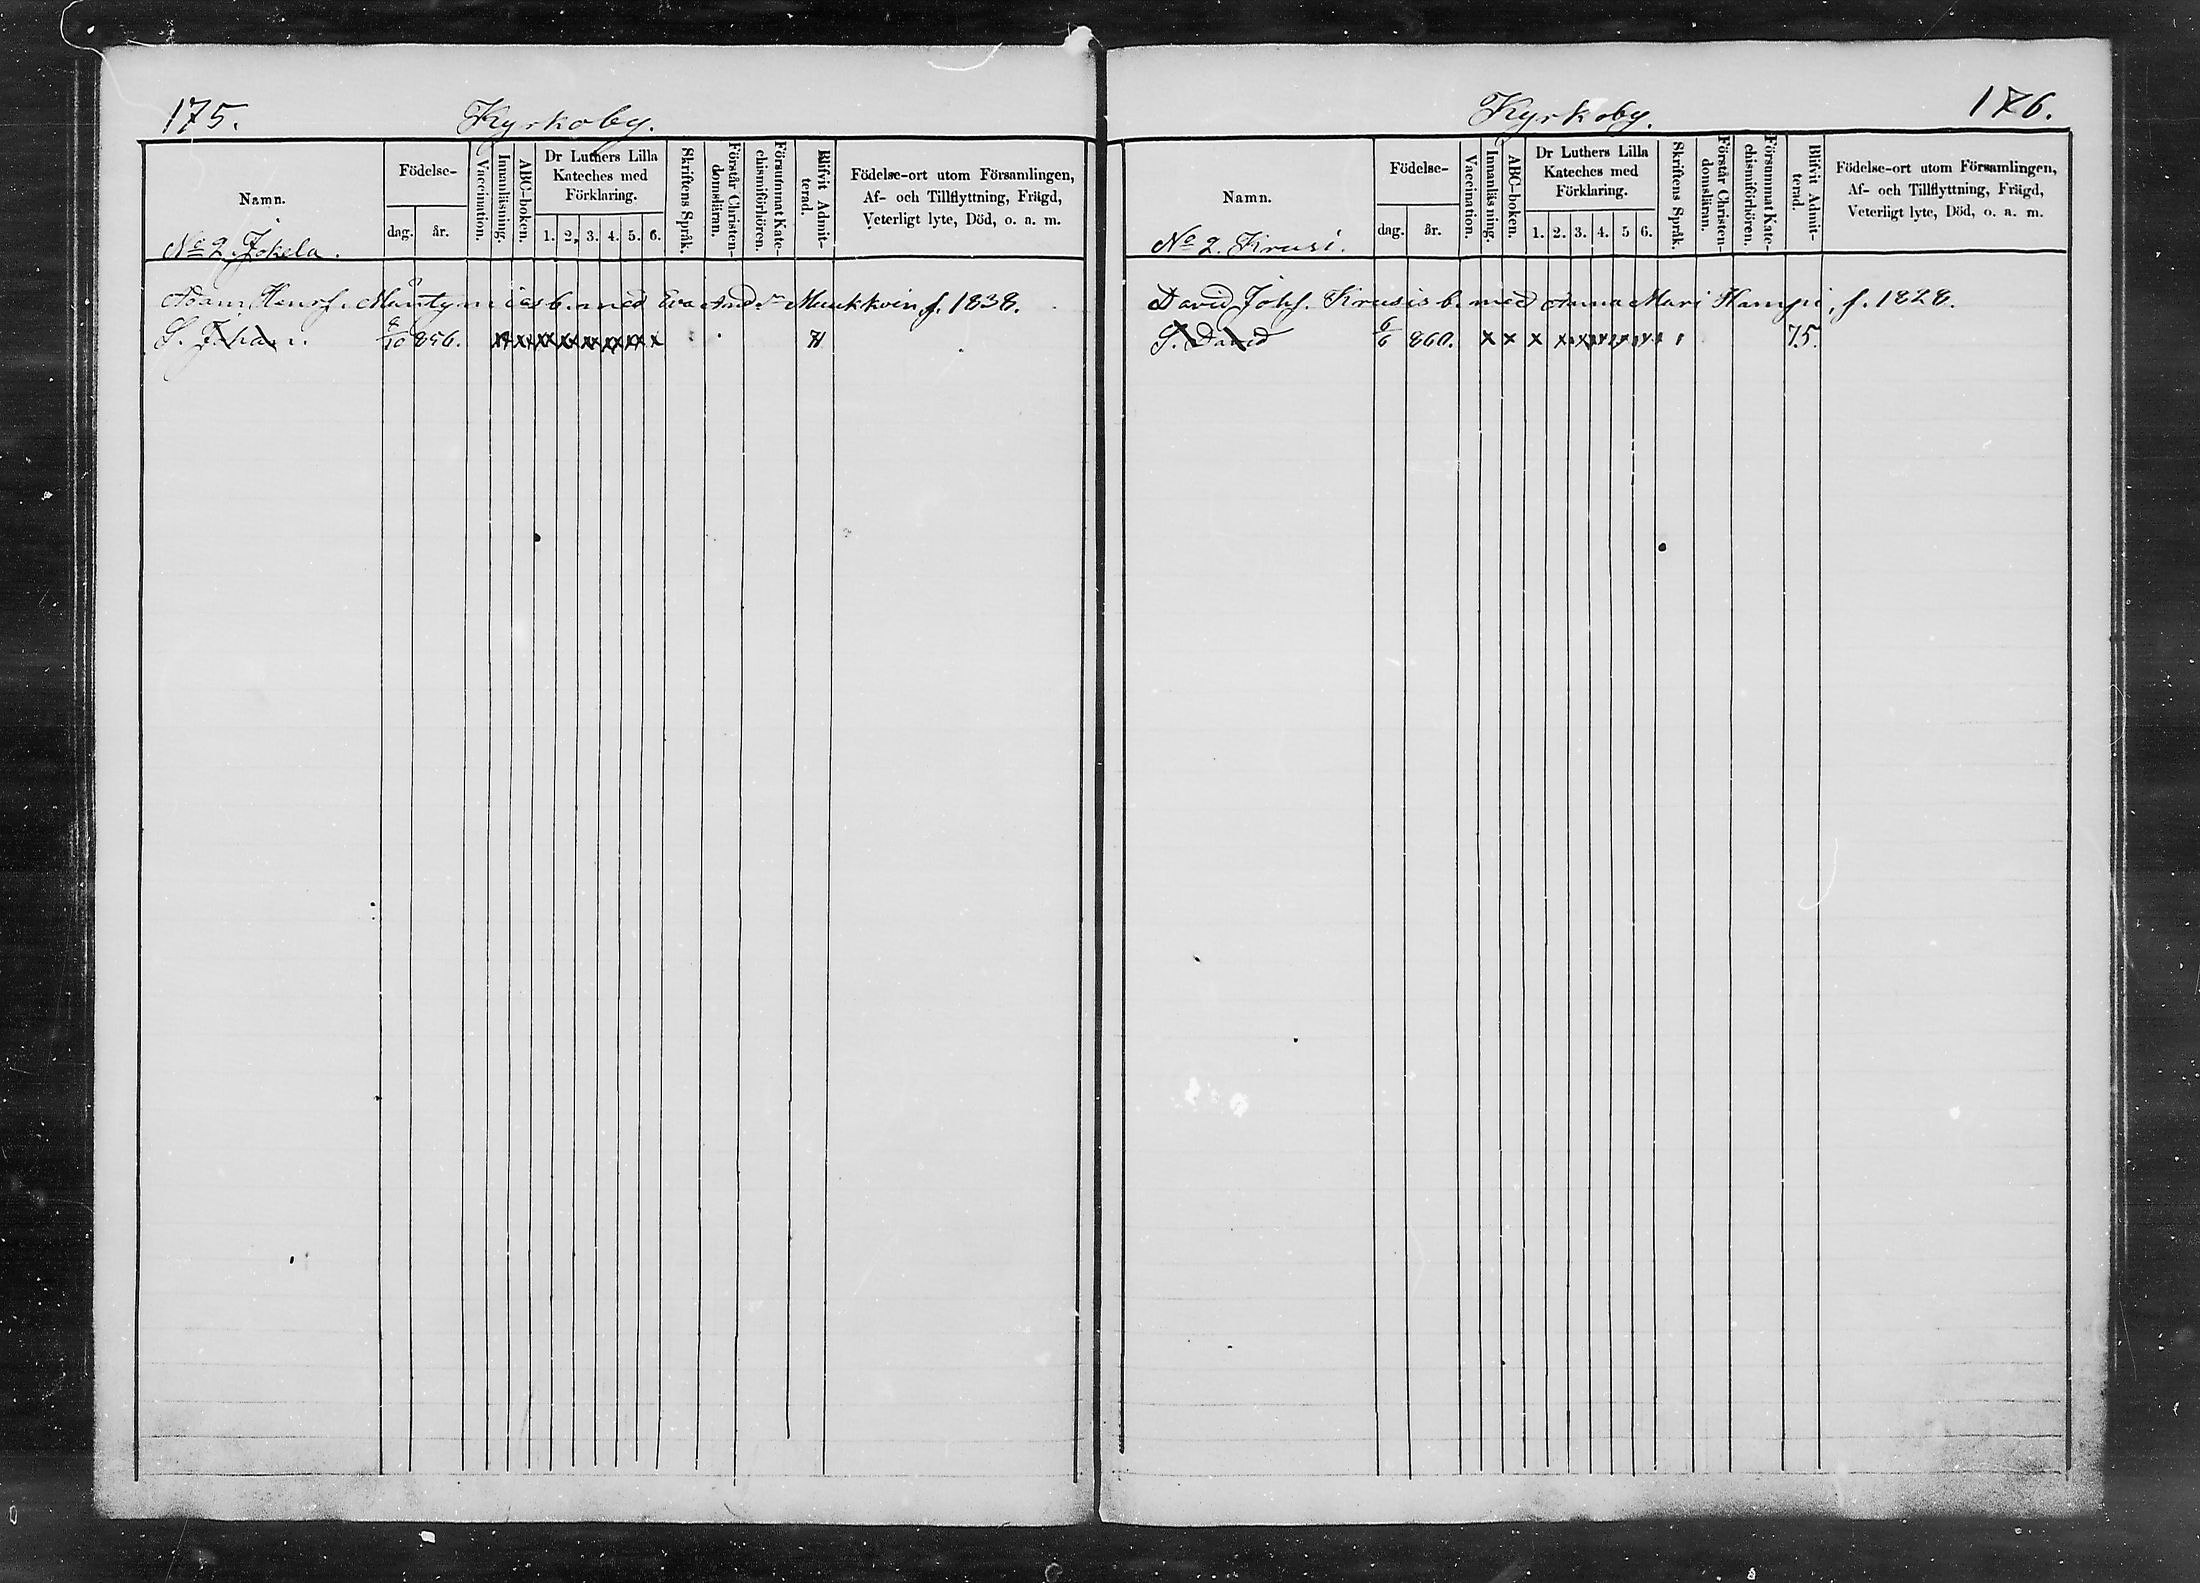 175.
Kyrkoby.
Namn.
Födelse-
dag.
år.
Vaccination.
Innanläsning.
ABC-boken.
Dr Luthers Lilla
Kateches med
Förklaring.
1. 2. 3. 4. 5. 6.
Skriftens Språk.
Förstår Christen-
domsläran.
Försummat Kate-
chismiförhören.
Blifvit Admit-
terad.
Födelse-ort utom Församlingen,
Af- och Tillflyttning, Frägd,
Veterligt lyte, Död, o. a. m.
No 2. Jokela.
Adam Henr. f. b. med Eva And. Munkkoin f. 1838.
S. Johan. 856.
Kyrkoby.
176.
Namn.
Födelse-
dag.
år.
Vaccination.
Innanläsning.
ABC-boken.
Dr Luthers Lilla
Kateches med
Förklaring.
1. 2. 3. 4. 5 6.
Skriftens Språk.
Förstår Christen-
domsläran.
Försummat Kate-
chismiförhören.
Blifvit Admit-
terad.
Födelse-ort utom Församlingen,
Af- och Tillflyttning, Frägd,
Veterligt lyte, Död, o. a. m.
No 2. Krusi.
David Joh f. Krusis b. med Anna Mari Hampi, f. 1828.
S. David 6/6 860. x x x 75.